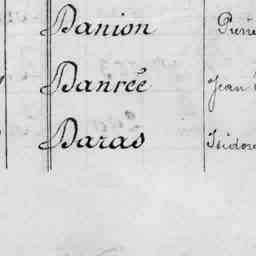 Danion Pierre
Danrée Jean
Daras Isidore